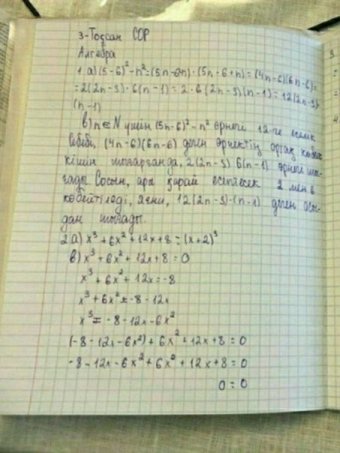 3-Тоқсан СОР
Алгебра
1. a) (5-6)² - n² = (5n-6-n)·(5n-6+n) = (4n-6)(6n-6) =
= 2(2n-3)·6(n-1) = 2·6(2n-3)(n-1) = 12(2n-3)·
(n-1)
в) n ∈ N үшін (5n-6)² - n² өрнегі 12-ге еселік
себебі, (4n-6)(6n-6) деген өрнектің ортақ көбей
кішін шығарғанда, 2(2n-3) 6(n-1) өрнегі шы-
ғады. Сосын, ары қарай есептесек 2 мен 6
көбейтіледі, яғни, 12(2n-3)·(n-1) деген осы-
дан шығады.
2. a) x³ + 6x² + 12x + 8 = (x+2)³
в) x³ + 6x² + 12x + 8 = 0
x³ + 6x² + 12x = -8
x³ + 6x² = -8 - 12x
x³ = -8 - 12x - 6x²
(-8 - 12x - 6x²) + 6x² + 12x + 8 = 0
-8 - 12x - 6x² + 6x² + 12x + 8 = 0
0 = 0